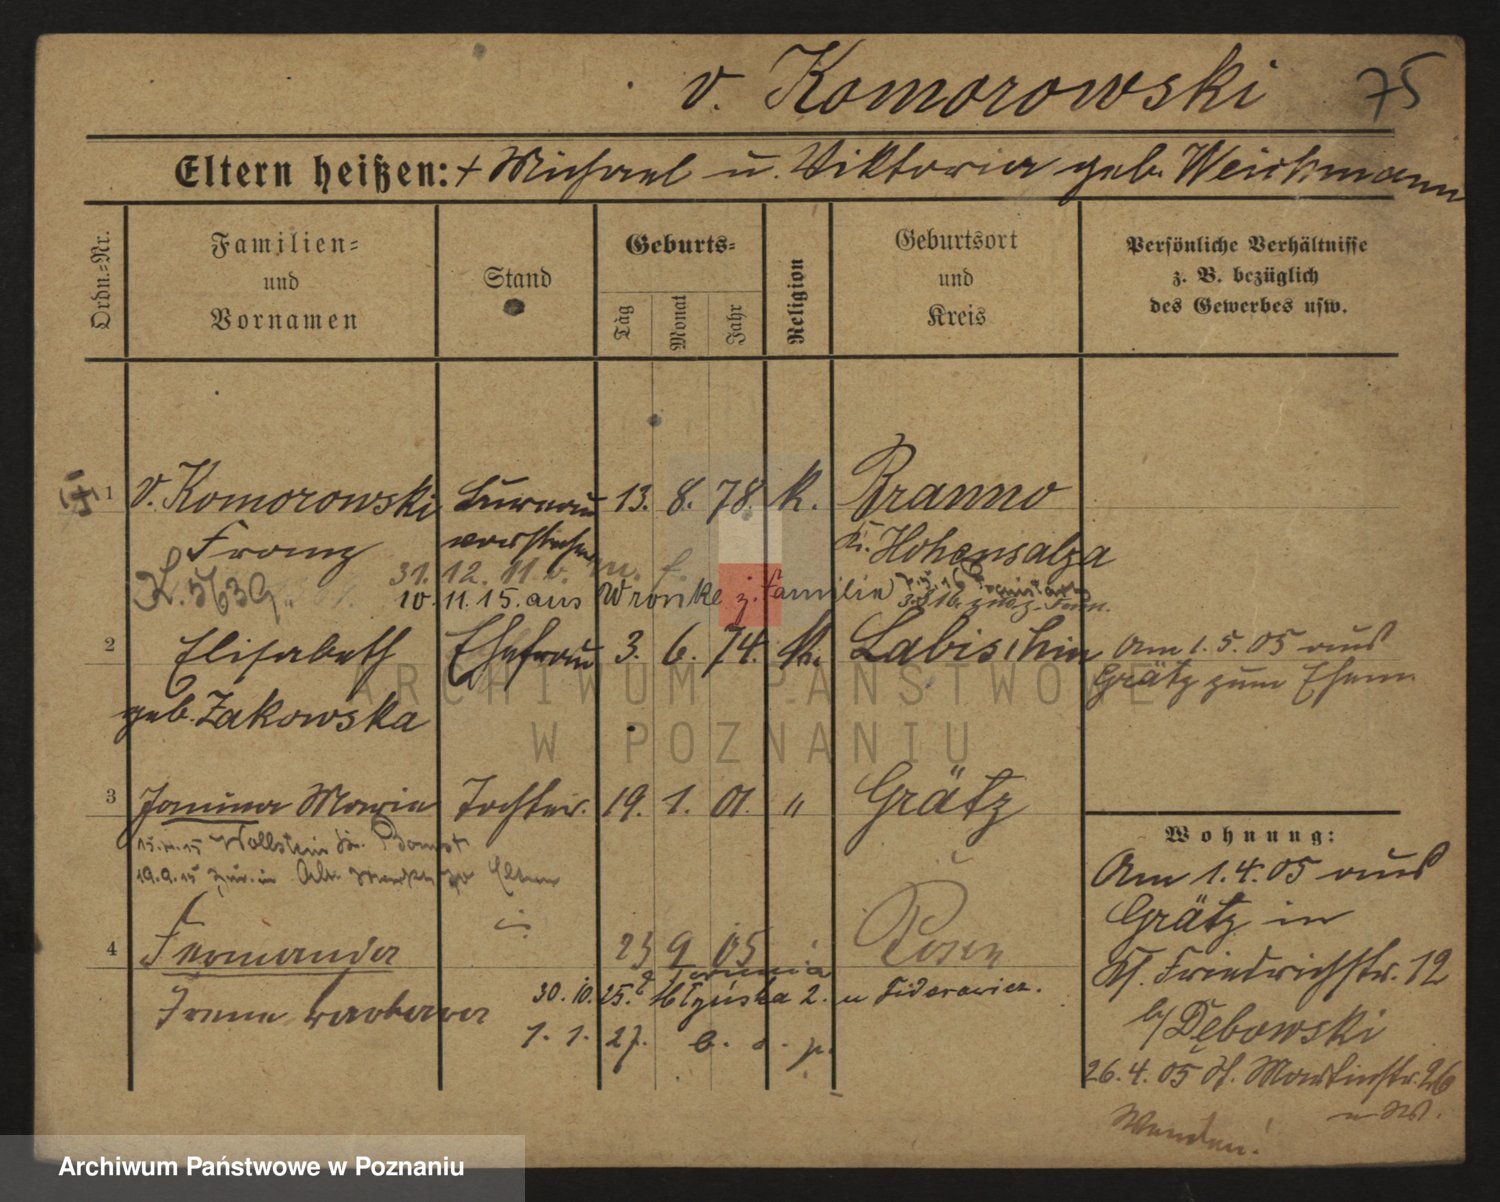 v. Komorowski 75
Eltern heißen: + Michael u. Viktoria geb. Weichmann
Ordn.-Nr.
Familien- und Vornamen
Stand
Geburts-
Tag Monat Jahr
Religion
Geburtsort und Kreis
Persönliche Verhältnisse
z. B. bezüglich
des Gewerbes usw.
1 v. Komorowski Bureau 13. 8. 78. K. Branno
Franz vorsteher Kr. Hohensalza
31. 12. 11 v.
10. 11. 15. aus Wronke z. Familie
2 Elisabeth Ehefrau 3. 6. 74. K. Labischin Am 1. 5. 05 aus
geb. Zakowska Grätz zum Ehem.
3 Janina Maria Tochter. 19. 1. 01. " Grätz
15.4.15 Wollstein Kr. Bomst
19.9.15 Eltern
4 Fernanda 23 9 05 Posen
Irene Barbara
30. 10. 25. 2. u Fiderewicz.
1. 1. 27.
Wohnung:
Am 1. 4. 05 aus
Grätz in
Friedrichstr. 12
b/ Dębowski
26. 4. 05 Martinstr. 26
Wenden!
ARCHIWUM PAŃSTWOWE
W POZNANIU
Archiwum Państwowe w Poznaniu